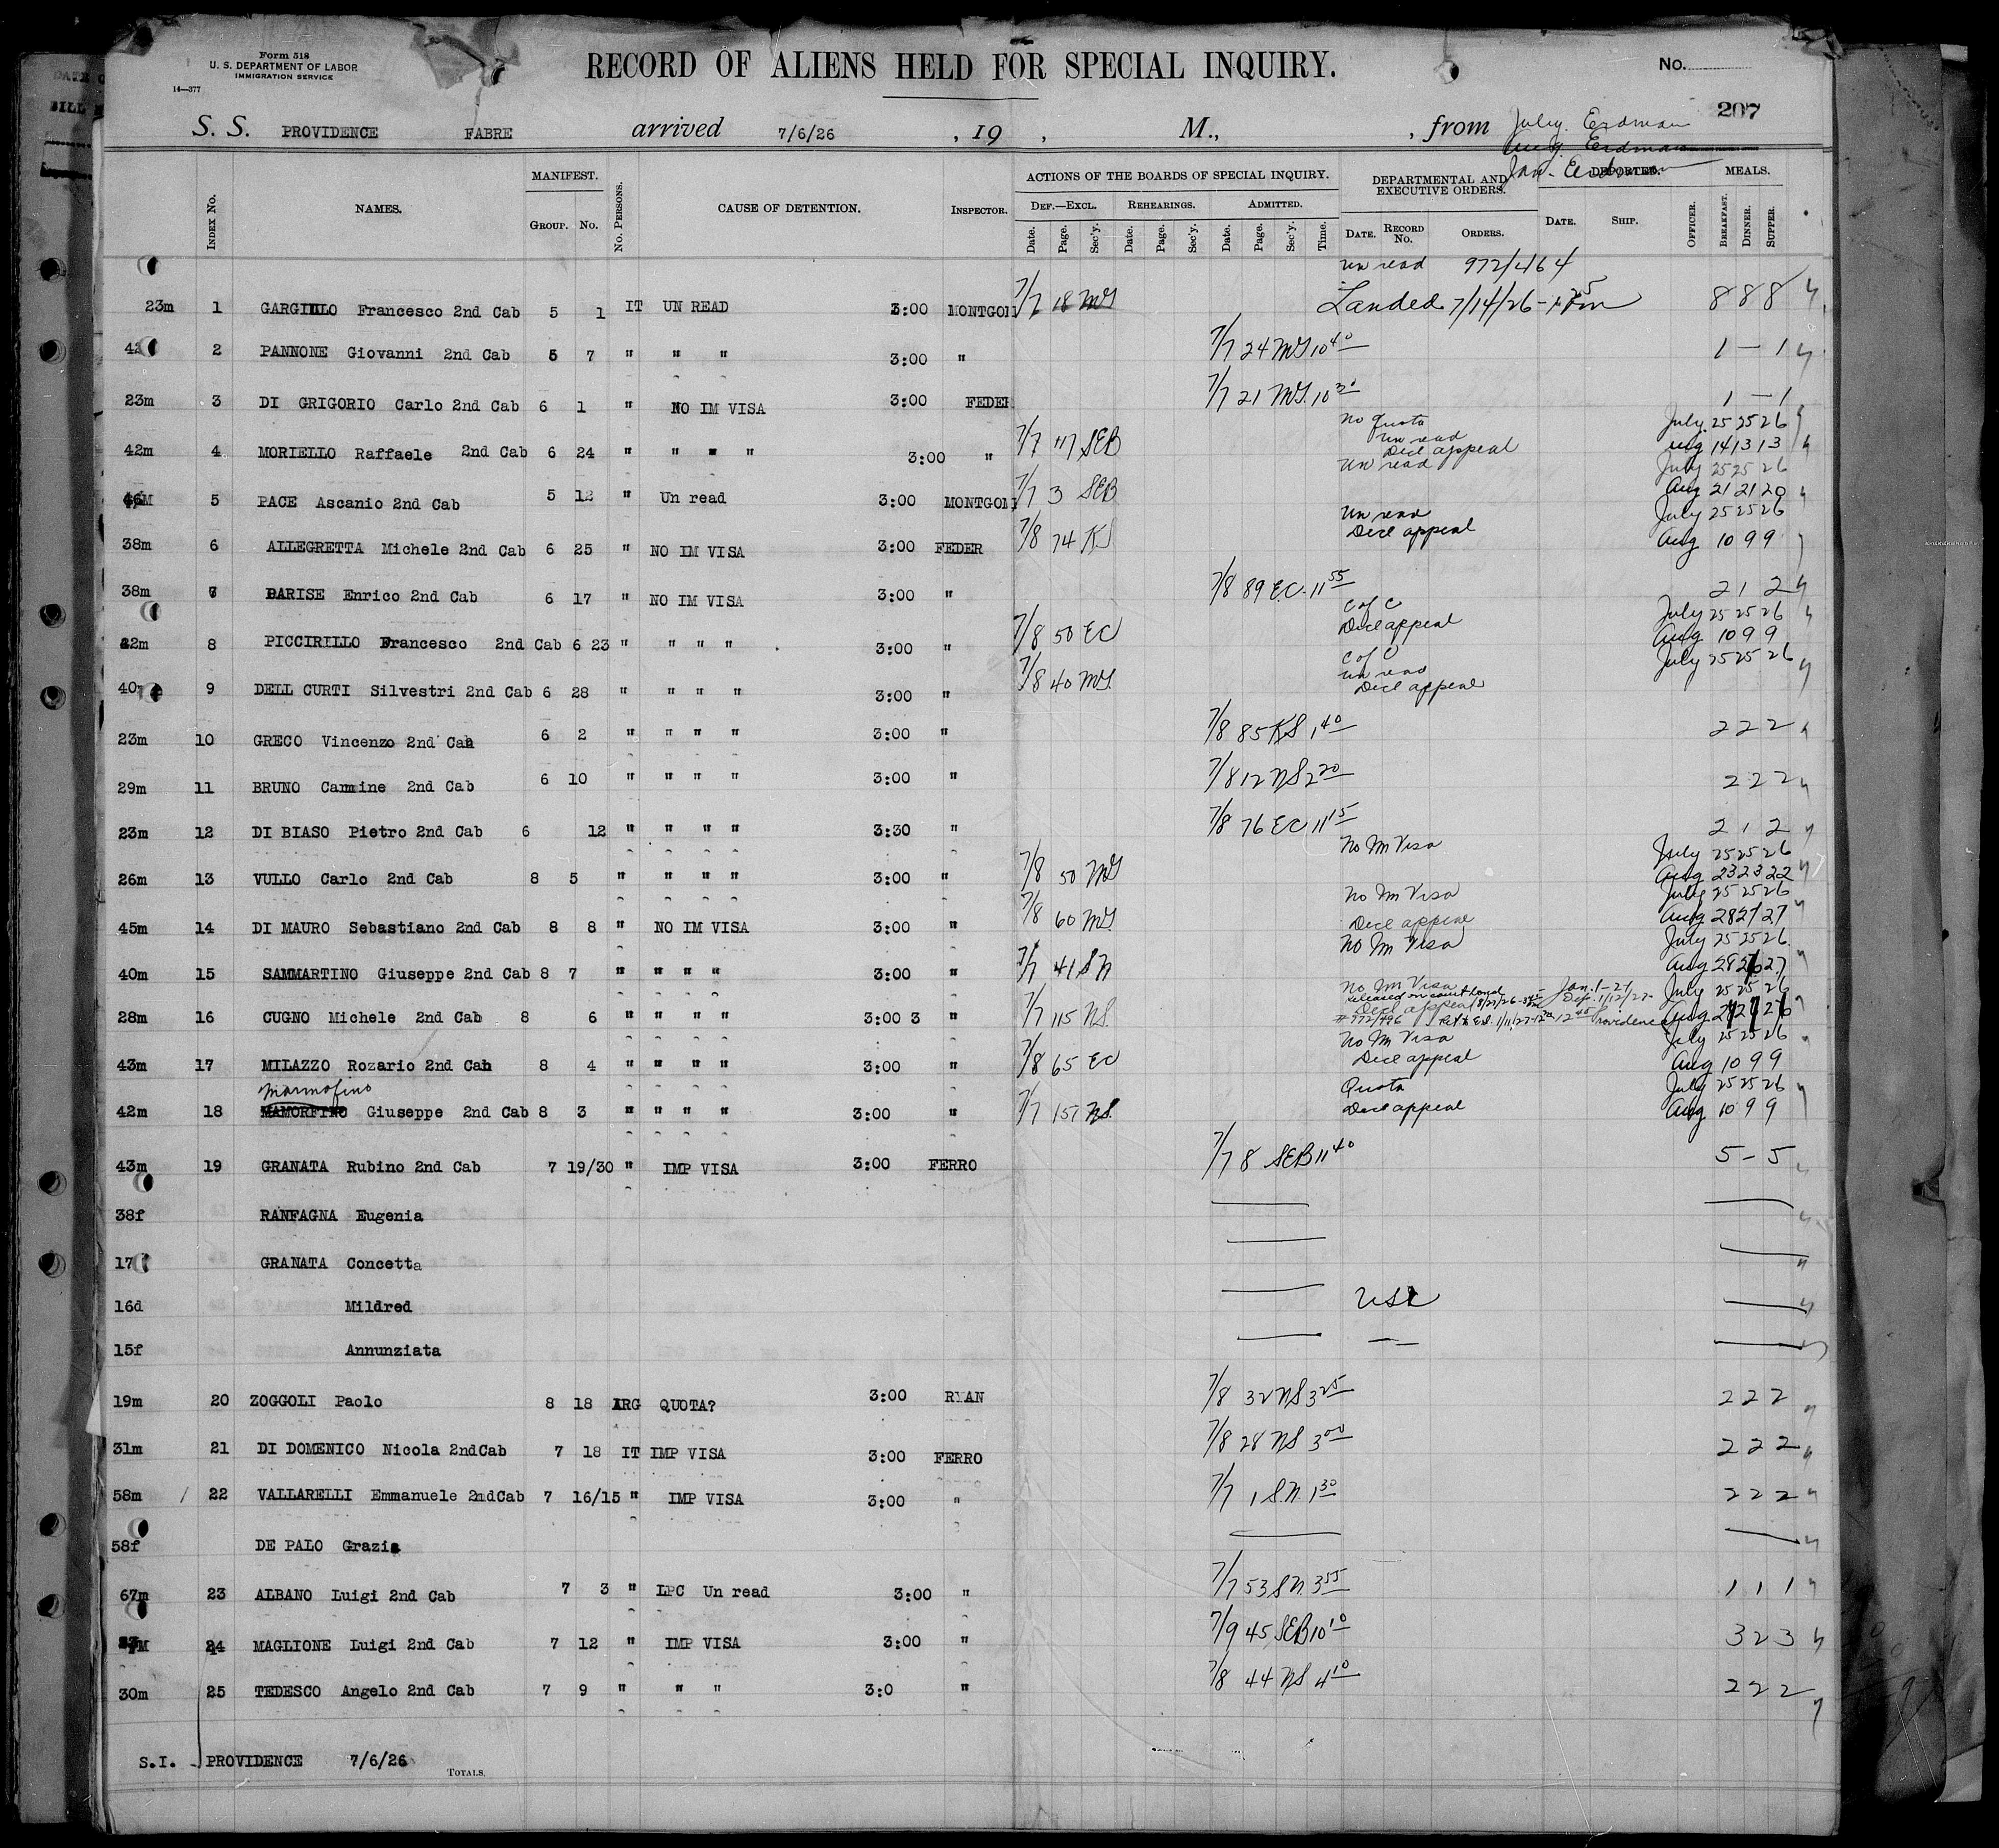 Form 518
U. S. DEPARTMENT OF LABOR
IMMIGRATION SERVICE
14—377
RECORD OF ALIENS HELD FOR SPECIAL INQUIRY.
No.
207
S. S. PROVIDENCE FABRE arrived 7/6/26 , 19 , M., , from July. Erdman
Aug. Erdman
Jan. Erdman
INDEX No. NAMES. MANIFEST. GROUP. No. No. PERSONS. CAUSE OF DETENTION. INSPECTOR. ACTIONS OF THE BOARDS OF SPECIAL INQUIRY. DEPARTMENTAL AND EXECUTIVE ORDERS. DEPORTED. MEALS.
DEF.—EXCL. REHEARINGS. ADMITTED.
Date. Page. Sec'y. Date. Page. Sec'y. Date. Page. Sec'y. Time. DATE. RECORD No. ORDERS. DATE. SHIP. OFFICER. BREAKFAST. DINNER. SUPPER.
un read 972/464
23m 1 GARGIULO Francesco 2nd Cab 5 1 IT UN READ 3:00 MONTGOM 7/7 18 MG Landed 7/14/26 8 8 8
2 PANNONE Giovanni 2nd Cab 5 7 " " " 3:00 " 7/7 24 MG 10 40 1 — 1
23m 3 DI GRIGORIO Carlo 2nd Cab 6 1 " NO IM VISA 3:00 FEDER 7/7 21 MG 10 30 1 — 1
no quota July 25 25 26
un read
42m 4 MORIELLO Raffaele 2nd Cab 6 24 " " " " 3:00 " 7/7 117 SEB Decl appeal Aug 14 13 13
un read July 25 25 26
5 PACE Ascanio 2nd Cab 5 12 " Un read 3:00 MONTGOM 7/7 3 SEB Aug 21 21 20
un read July 25 25 26
38m 6 ALLEGRETTA Michele 2nd Cab 6 25 " NO IM VISA 3:00 FEDER 7/8 74 KS Decl appeal Aug 10 9 9
38m 7 BARISE Enrico 2nd Cab 6 17 " NO IM VISA 3:00 " 7/8 89 EC. 11 55 2 1 2
C of C July 25 25 26
42m 8 PICCIRILLO Francesco 2nd Cab 6 23 " " " " 3:00 " 7/8 50 EC Decl appeal Aug 10 9 9
C of C July 25 25 26
un read
40 9 DELL CURTI Silvestri 2nd Cab 6 28 " " " " 3:00 " 7/8 40 MG. Decl appeal
23m 10 GRECO Vincenzo 2nd Cab 6 2 " " " " 3:00 " 7/8 85 KS 1 40 2 2 2
29m 11 BRUNO Carmine 2nd Cab 6 10 " " " " 3:00 " 7/8 12 NS 2 20 2 2 2
23m 12 DI BIASO Pietro 2nd Cab 6 12 " " " " 3:30 " 7/8 76 EC 11 15 2 1 2
No Im Visa July 25 25 26
26m 13 VULLO Carlo 2nd Cab 8 5 " " " " 3:00 " 7/8 50 MG Aug 23 23 22
No Im Visa July 25 25 26
45m 14 DI MAURO Sebastiano 2nd Cab 8 8 " NO IM VISA 3:00 " 7/8 60 MG Decl appeal Aug 28 27 27
No Im Visa July 25 25 26
40m 15 SAMMARTINO Giuseppe 2nd Cab 8 7 " " " " 3:00 " 7/7 41 SN Aug 27
No Im Visa July 25 25 26
Released on court bond 8/27/26 Jan. 1-21
Decl appeal Dep. 1/12/27
28m 16 CUGNO Michele 2nd Cab 8 6 " " " " 3:00 3 " 7/7 115 NS. # 972/496 Ret to E.I. 1/11/27 Providence Aug
No Im Visa July 25 25 26
43m 17 MILAZZO Rozario 2nd Cab 8 4 " " " " 3:00 " 7/8 65 EC Decl appeal Aug 10 9 9
Marmofino Quota July 25 25 26
42m 18 MAMORFINO Giuseppe 2nd Cab 8 3 " " " " 3:00 " 7/7 157 NS. Decl appeal Aug. 10 9 9
43m 19 GRANATA Rubino 2nd Cab 7 19/30 " IMP VISA 3:00 FERRO 7/7 8 SEB 11 40 5 — 5
38f RANFAGNA Eugenia
17 GRANATA Concetta
16d Mildred USC
15f Annunziata
19m 20 ZOGGOLI Paolo 8 18 ARG QUOTA? 3:00 RYAN 7/8 32 NS 3 25 2 2 2
31m 21 DI DOMENICO Nicola 2ndCab 7 18 IT IMP VISA 3:00 FERRO 7/8 28 NS 3 00 2 2 2
58m 22 VALLARELLI Emmanuele 2ndCab 7 16/15 " IMP VISA 3:00 " 7/7 1 S.N. 1 30 2 2 2
58f DE PALO Grazia
67m 23 ALBANO Luigi 2nd Cab 7 3 " LPC Un read 3:00 " 7/7 53 SN. 3 55 1 1 1
24 MAGLIONE Luigi 2nd Cab 7 12 " IMP VISA 3:00 " 7/9 45 SEB 10 10 3 2 3
30m 25 TEDESCO Angelo 2nd Cab 7 9 " " " 3:0 " 7/8 44 NS 4 10 2 2 2
S.I. PROVIDENCE 7/6/26 TOTALS.